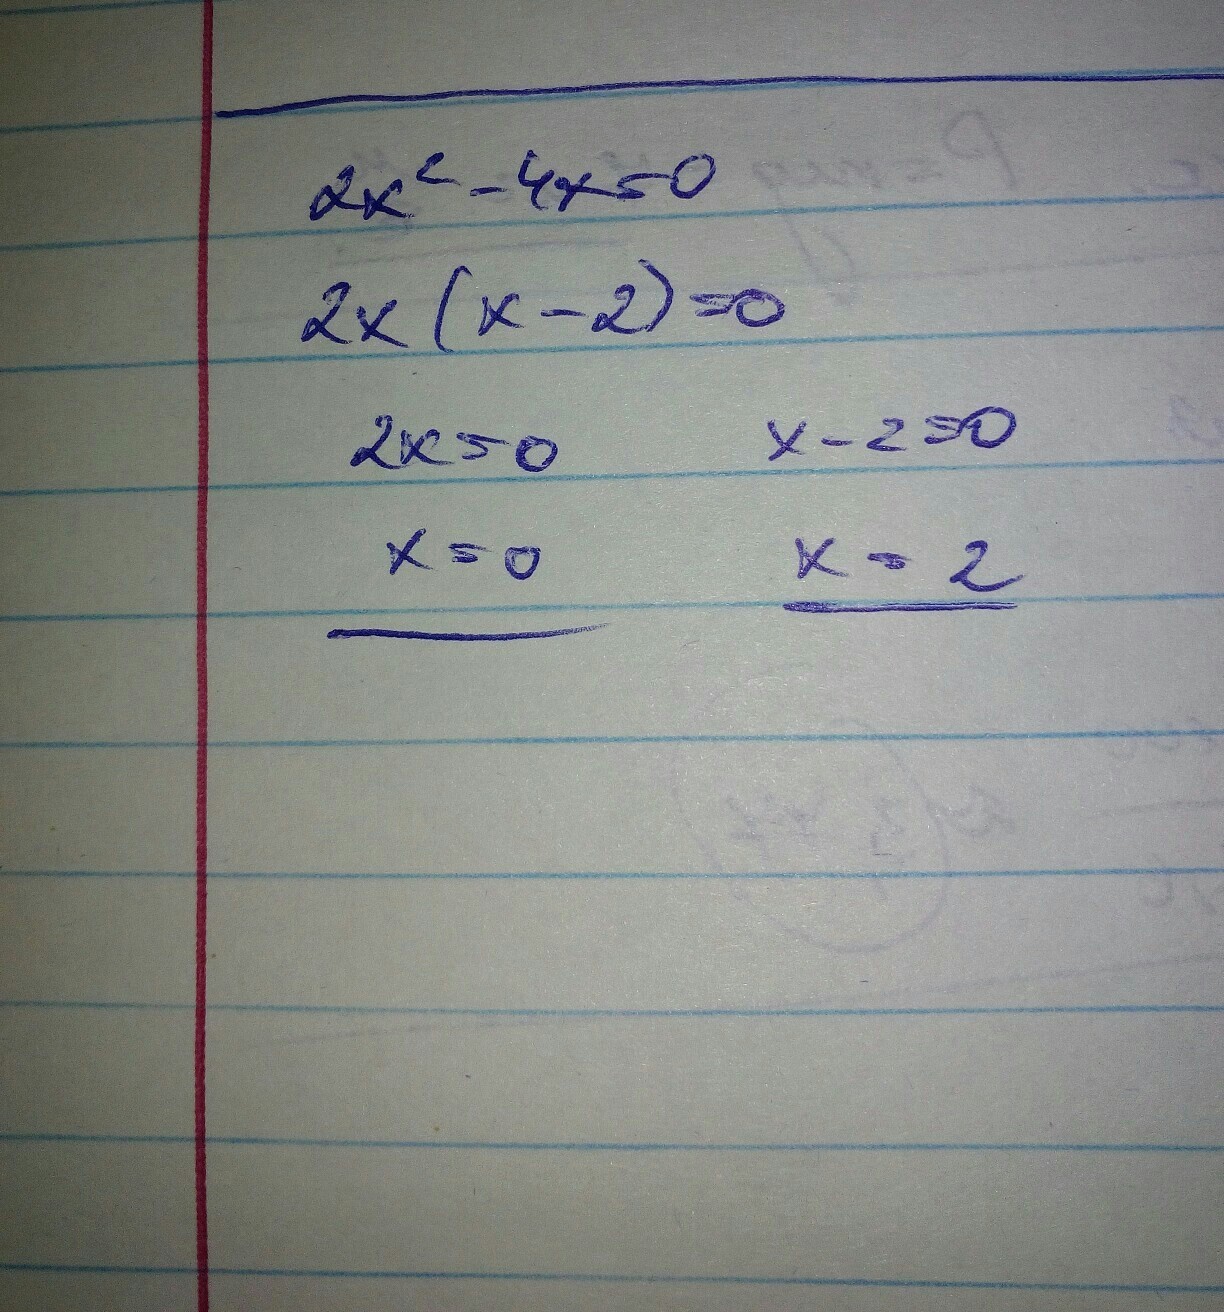 2x² - 4x = 0
2x (x - 2) = 0
2x = 0 x - 2 = 0
x = 0 x = 2